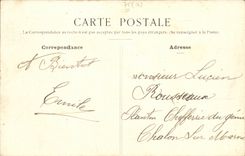 CARTE POSTALE
La Correspondance au recto n'est pas acceptée par tous les pays étrangers. (Se renseigner à la Poste)
Correspondance
Adresse
A Bientot
Emile
Monsieur Lucien
Rousseaux
du génie
Chalon sur Marne